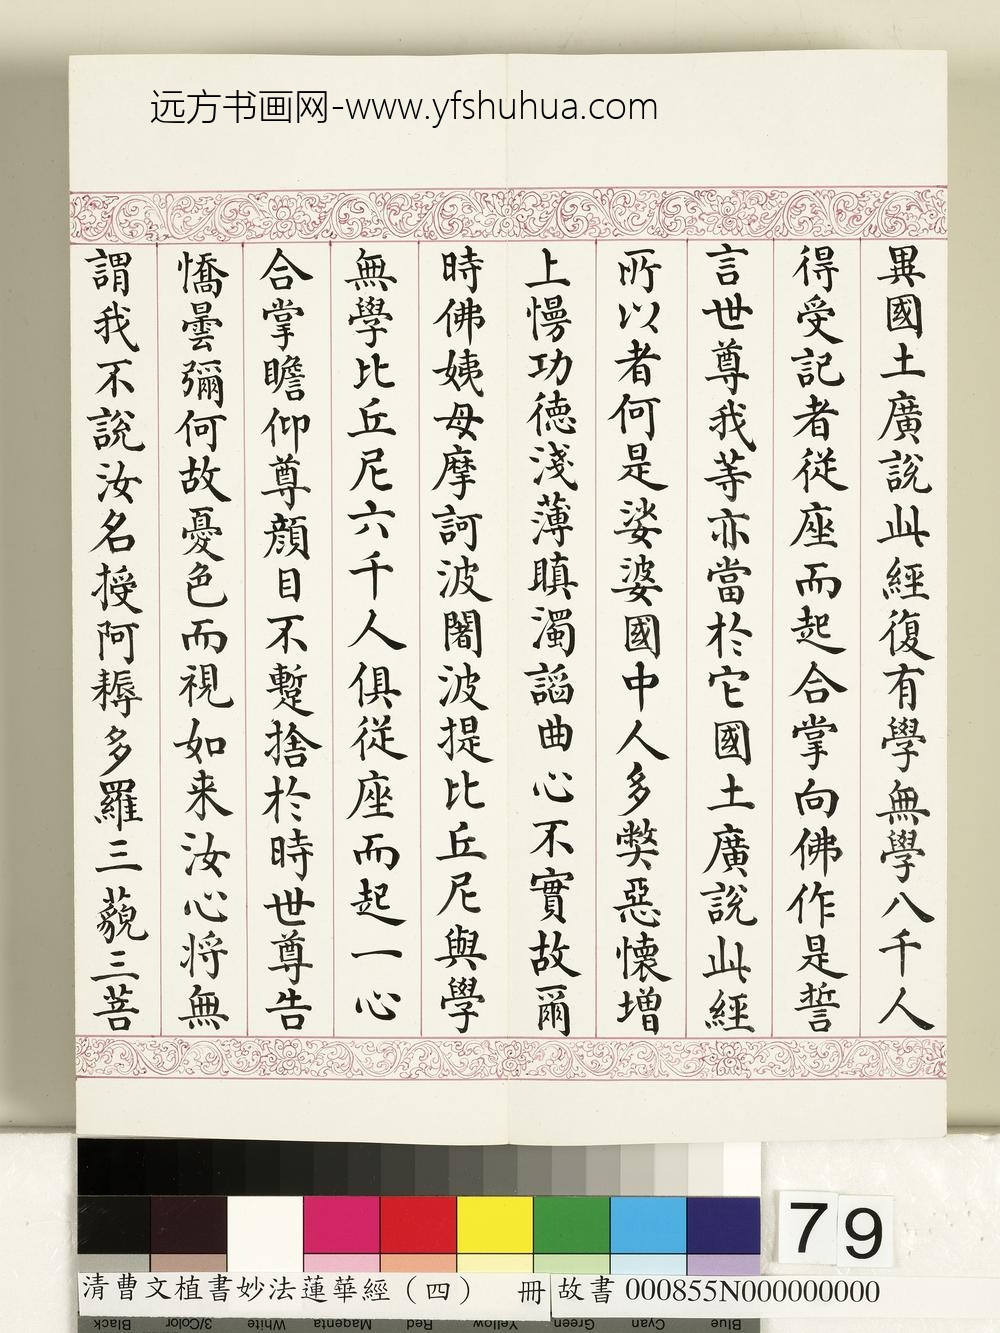 远方书画网-www.yfshuhua.com
異國土廣說此經復有學無學八千人
得受記者從座而起合掌向佛作是誓
言世尊我等亦當於它國土廣說此經
所以者何是娑婆國中人多獘惡懷增
上慢功德淺薄瞋濁諂曲心不實故爾
時佛姨母摩訶波闍波提比丘尼與學
無學比丘尼六千人俱從座而起一心
合掌瞻仰尊顏目不蹔捨於時世尊告
憍曇彌何故憂色而視如来汝心将無
謂我不說汝名授阿耨多羅三藐三菩
79
清曹文植書妙法蓮華經（四） 冊 故書 000855N000000000
Black 3/Color White Magenta Red Yellow Green Cyan Blue